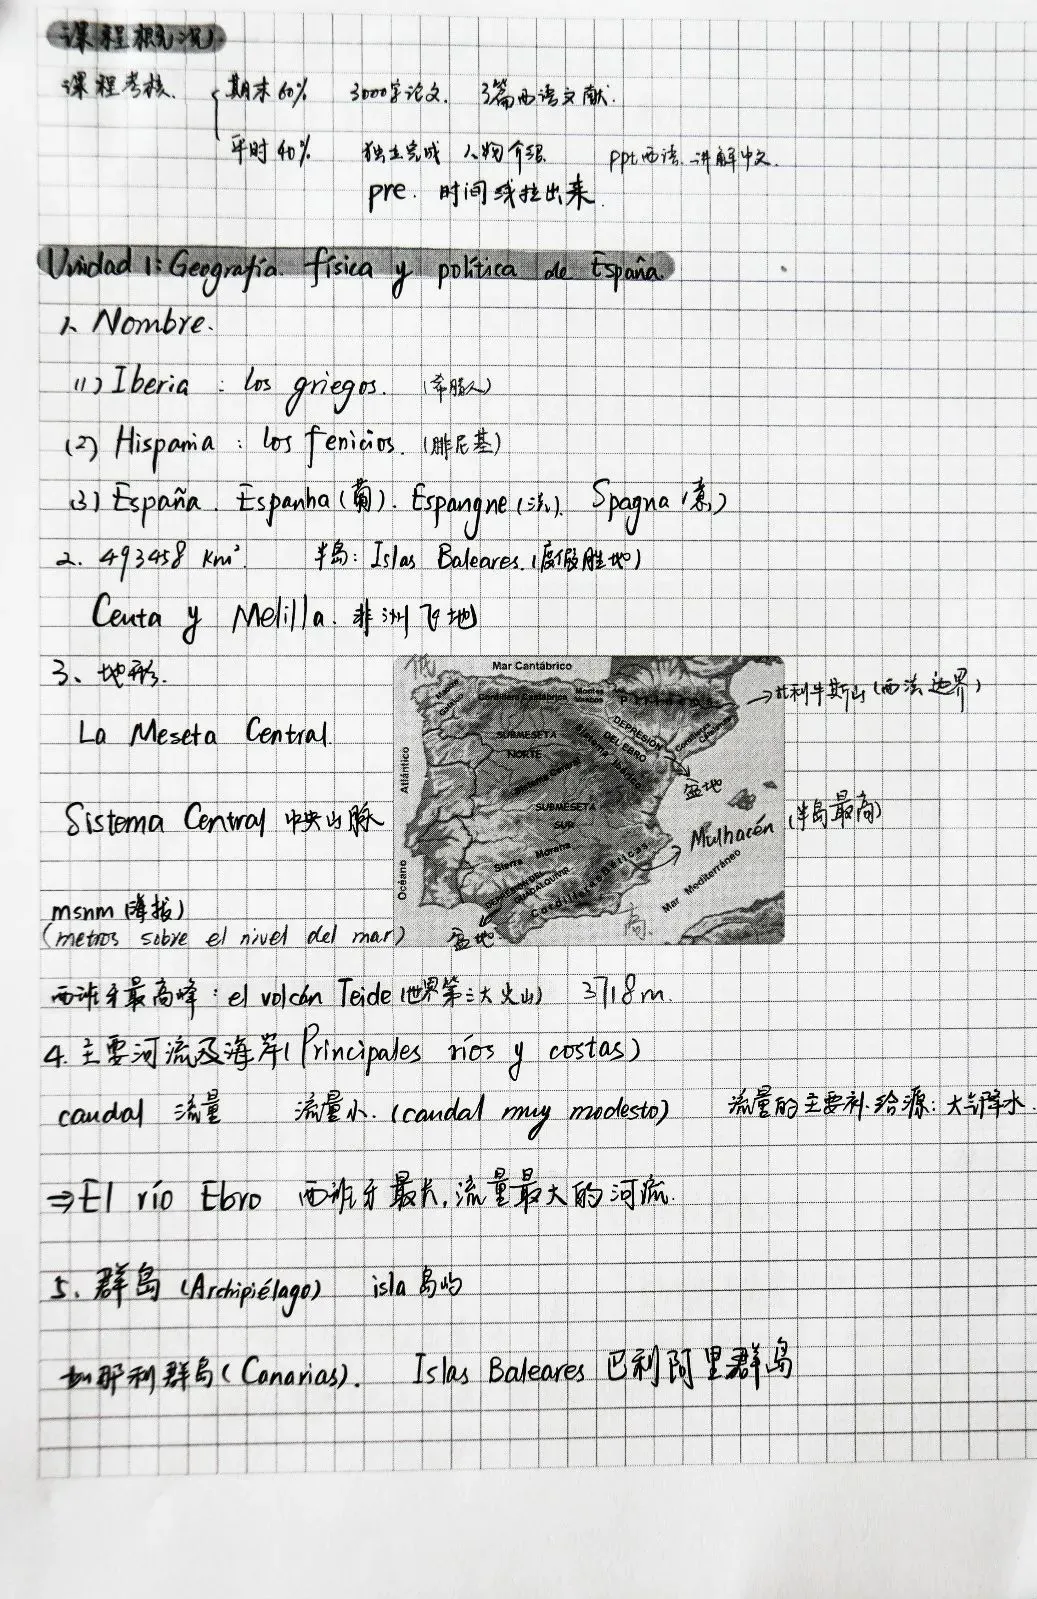 课程概况
课程考核 期末60% 3000字论文. 3篇西语文献.
平时40% 独立完成 人物介绍 ppt西语. 讲解中文.
pre. 时间线拉出来.
Unidad 1: Geografía. física y política de España.
1、Nombre.
(1) Iberia : los griegos. (希腊人)
(2) Hispania : los fenicios. (腓尼基)
(3) España. Espanha (葡). Espangne (法). Spagna (意)
2. 493458 Km². 半岛: Islas Baleares. (度假胜地)
Ceuta y Melilla. 非洲飞地
3、地形.
低
Mar Cantábrico
→比利牛斯山 (西法边界)
Cordillera Cantábrica
Montes Vascos
Pirineos
La Meseta Central.
SUBMESETA NORTE
DEPRESIÓN DEL EBRO
Sistema Ibérico
Atlántico
盆地
Sistema Central 中央山脉
Sistema Central
SUBMESETA SUR
Mulhacén (半岛最高)
Océano
Sierra Morena
DEPRESIÓN DEL GUADALQUIVIR
Cordilleras Béticas
Mar Mediterráneo
高
msnm (海拔)
(metros sobre el nivel del mar)
盆地
西班牙最高峰: el volcán Teide (世界第三大火山) 3718m.
4. 主要河流及海岸 (Principales ríos y costas)
caudal 流量 流量小. (caudal muy modesto) 流量的主要补给源: 大气降水.
⇒El río Ebro 西班牙最长, 流量最大的河流.
5、群岛 (Archipiélago) isla 岛屿
加那利群岛 (Canarias). Islas Baleares 巴利阿里群岛